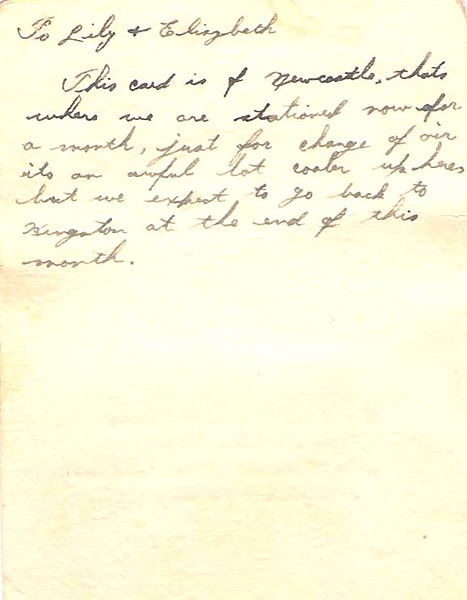 To Lily + Elizabeth
This card is of Newcastle, thats
where we are stationed now for
a month, just for change of air
its an awful lot cooler up here
but we expect to go back to
Kingston at the end of this
month.